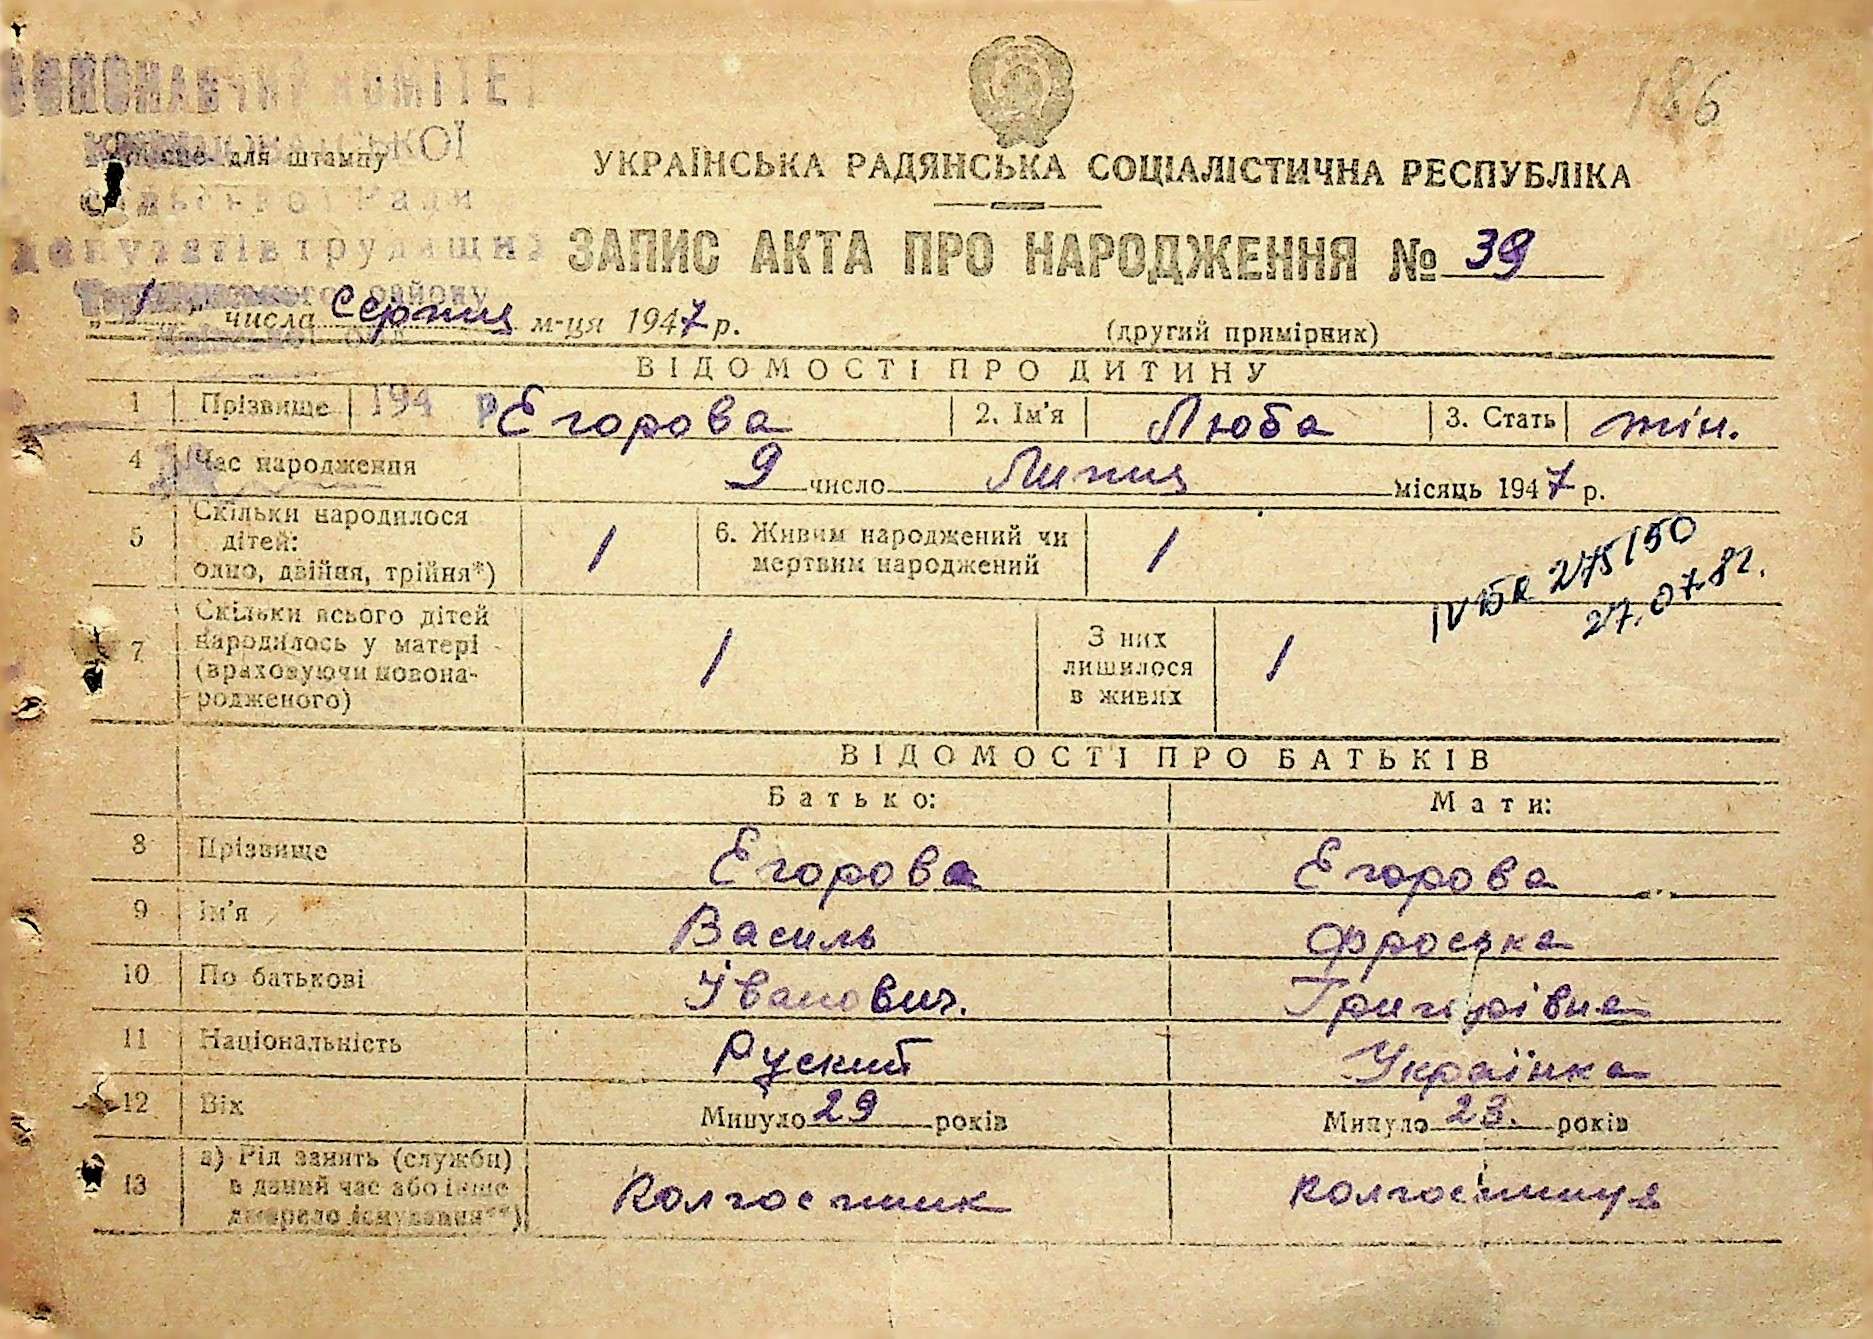 186
КОМІТЕТ
Місце для штампу
УКРАЇНСЬКА РАДЯНСЬКА СОЦІАЛІСТИЧНА РЕСПУБЛІКА
Ради
депутатів трудящих
ЗАПИС АКТА ПРО НАРОДЖЕННЯ № 39
району
„1" числа Серпня м-ця 1947 р.
(другий примірник)
ВІДОМОСТІ ПРО ДИТИНУ
1 Прізвище 194 р Егорова 2. Ім'я Люба 3. Стать жін.
4 Час народження 9 число Липня місяць 1947 р.
5 Скільки народилося дітей: одно, двійня, трійня*) 1 6. Живим народжений чи мертвим народжений 1
IV БК 275150
27.07.82.
7 Скільки всього дітей народилось у матері (враховуючи новонародженого) 1 З них лишилося в живих 1
ВІДОМОСТІ ПРО БАТЬКІВ
Батько: Мати:
8 Прізвище Егорова Егорова
9 Ім'я Василь Фроська
10 По батькові Іванович. Григорівна
11 Національність Руский Українка
12 Вік Минуло 29 років Минуло 23. років
13 а) Рід занять (служби) в даний час або інше джерело існування**) Колгоспник колгоспниця